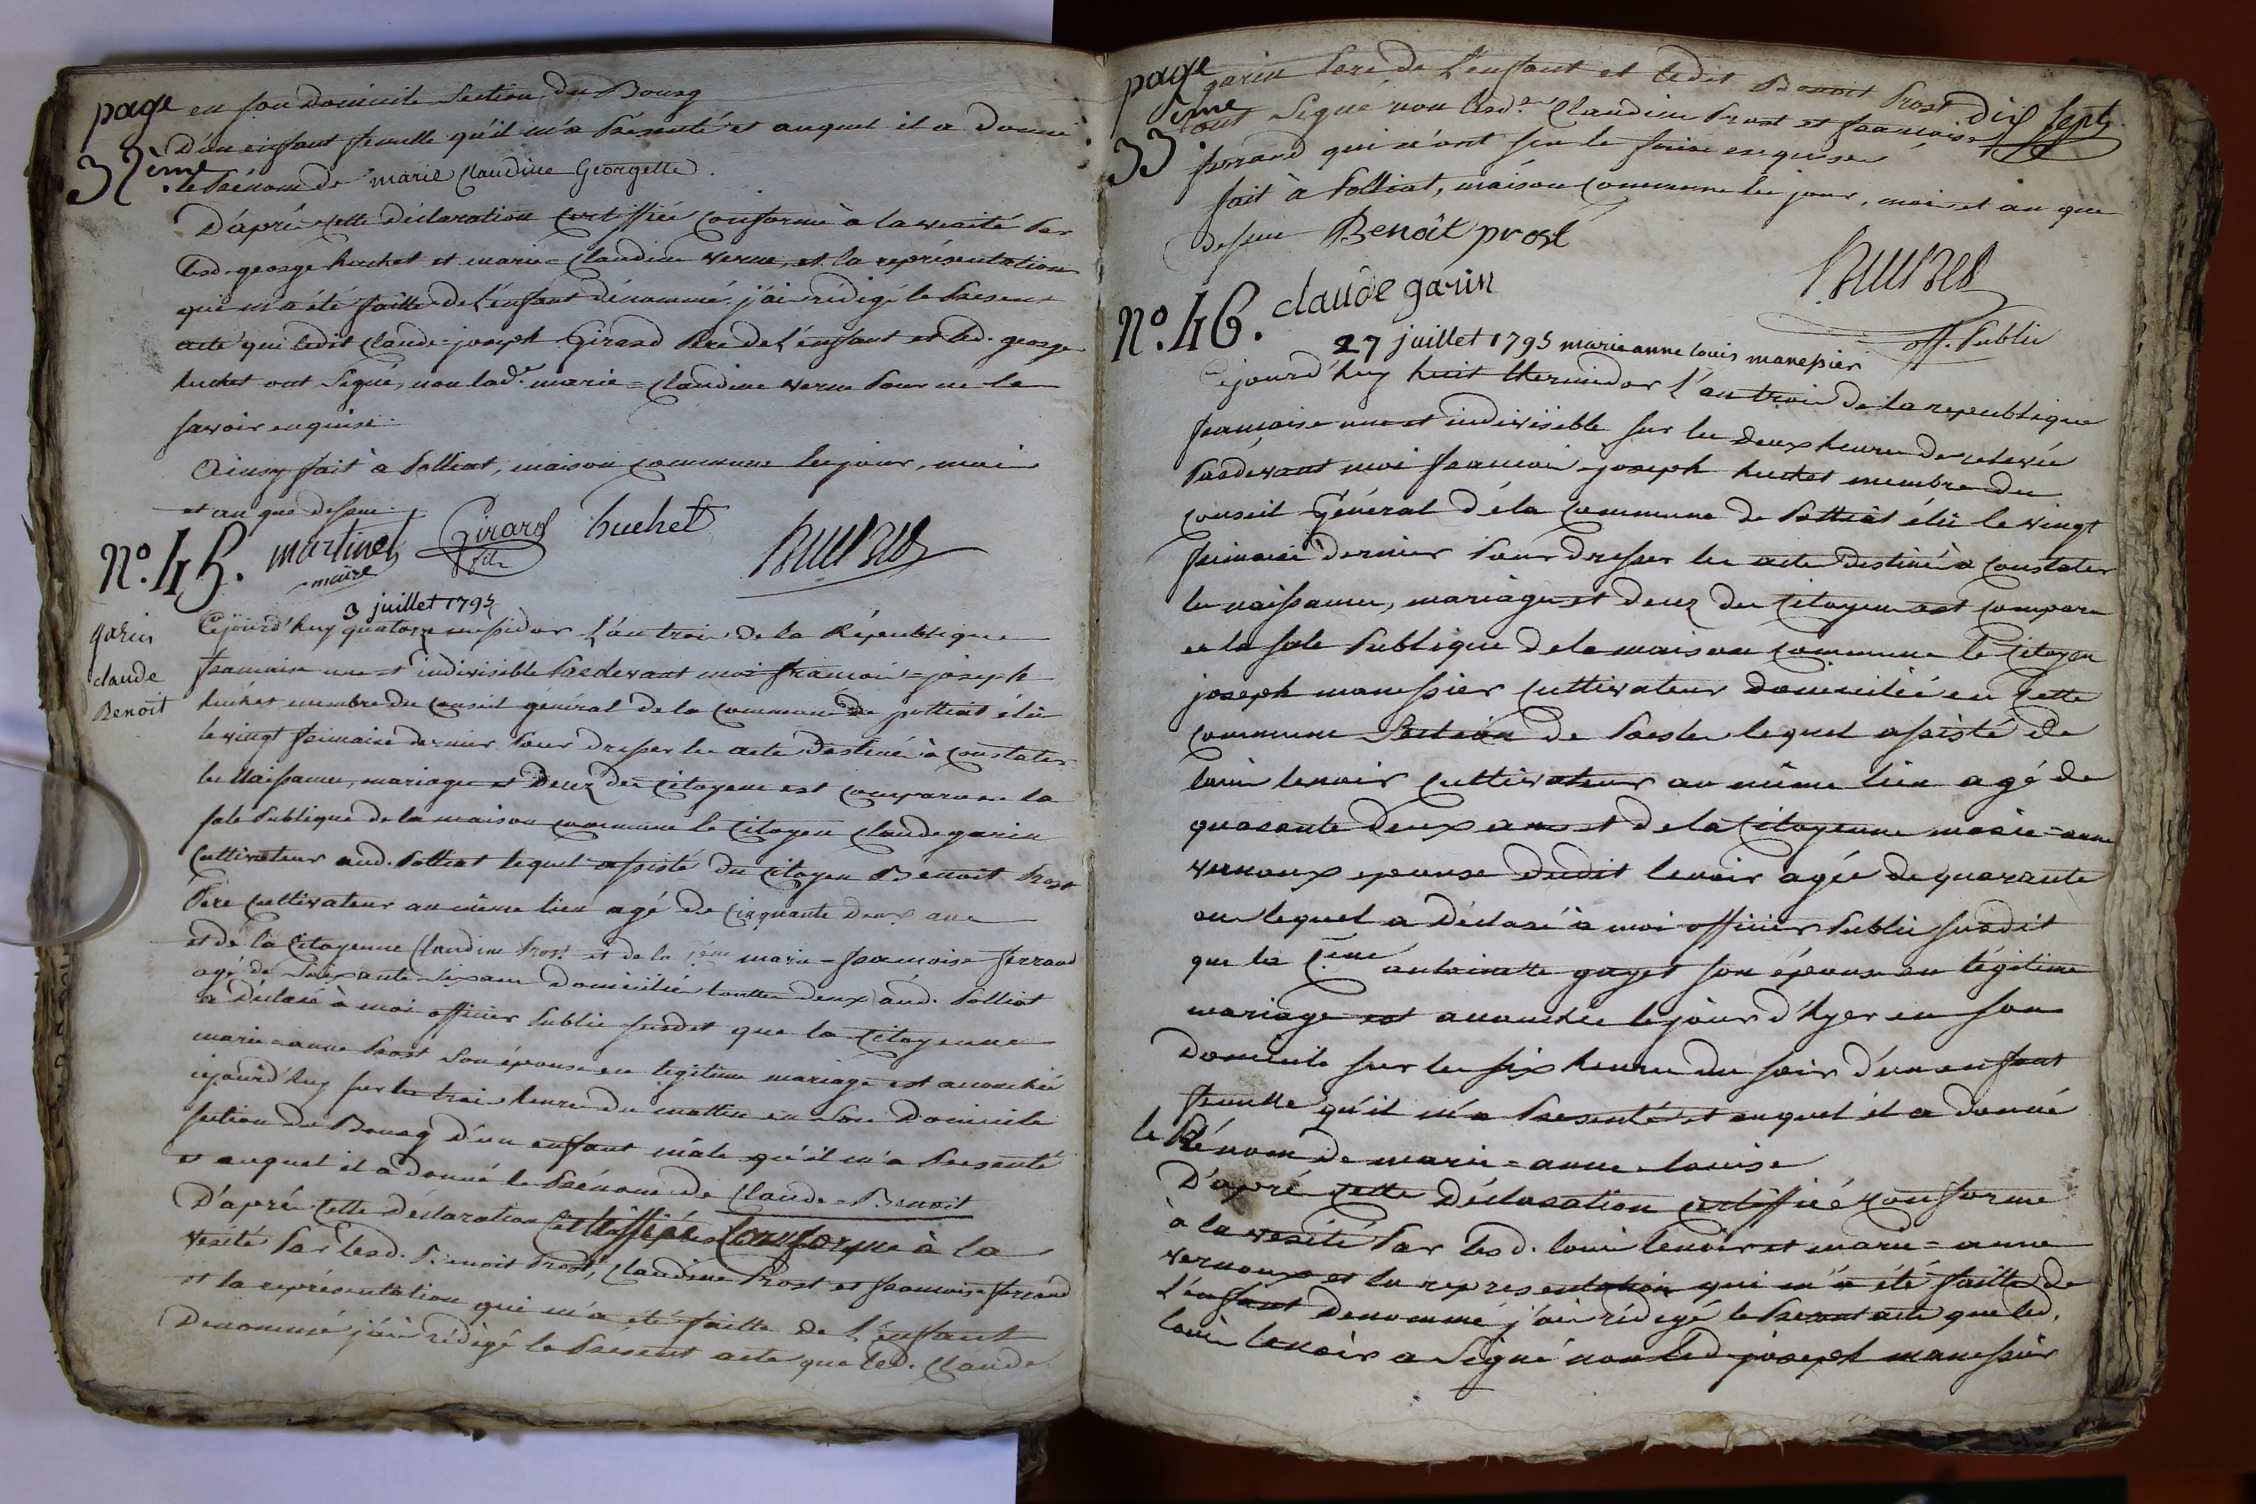 page
32ème
en son domicile section du Bourg
D'un enfant femelle qu'il m'a Présenté et auquel il a Donné
le Prénom de marie Claudine Georgette.
D'aprés cette déclaration certiffiée conforme à la verité Par
lesd. george huchet et marie=Claudine verne, et la représentation
qui m'a été faitte de l'enfant dénommé, j'ai rédigé le Present
acte que ledit Claude=joseph Girard Pere de l'enfant et led. george
huchet ont Signé, non lad.e marie=Claudine verne Pour ne le
savoir enquise.
Ainsy fait à Polliat, maison commune les jour, mois
et an que dessus.
martinet
maire
Girard
fils
huchet
N°. 45.
3 juillet 1795
garin
claude
Benoit
Cejourd'huy quatorze messidor l'an trois de la République
francaise une et indivisible Pardevant moi francois=joseph
huchet membre du conseil général de la commune de polliat élû
le vingt frimaire dernier Pour dresser les acte Destiné à constater
les Naissances, mariages et Deuz des citoyens est comparu en la
sale Publique de la maison commune le citoyen Claude garin
Cultivateur aud. Polliat lequel assisté du citoyen Benoit Prost
Père cultivateur au même lieu agé de cinquante deux ans
et de la Citoyenne Claudine Prost et de la c.enne marie=francoise ferrand
agé de soixante six ans domiciliée touttes deux aud. Polliat
a déclaré à moi officier Public susdit que la citoyenne
marie=anne Prost son épouse en légitime mariage est accouchée
cejourd'huy sur les trois heures du mattin en son Domicile
section du Bourg d'un enfant mâle qu'il m'a Présenté
et auquel il a donné le Prénom de Claude=Benoit
D'aprés cette déclaration certiffiée conforme à la
vérité Par lesd. Benoit Prost, Claudine Prost et francoise ferrand
et la représentation qui m'a été faitte de l'enfant
Denommé j'ai rédigé le Présent acte que led. Claude
page
33ème
Dix sept.
garin Pere de l'enfant et ledit Benoit Prost
ont Signé non lesd.es Claudine Prost et francoise
ferrand qui n'ont su le faire enquises
fait à Polliat, maison commune les jour, mois et an que
dessus Benoît prost
claude garin
off. Public
N°. 46.
27 juillet 1795 marie anne louis manessier
Cejourd'huy huit thermidor l'an trois de la republique
francaise une et indivisible sur les deux heures de relevée
Pardevant moi francois-joseph huchet membre du
conseil Général de la commune de Polliat élû le vingt
frimaire dernier Pour dresser les acte Destiné à constater
les naissances, mariages et deuz des citoyens est comparu
en la sale Publique de la maison commune le Citoyen
joseph manessier cultivateur domicilié en cette
commune Section de Presles lequel assisté de
louis lenoir cultivateur au même lieu agé de
quarante deux ans et de la citoyenne marie=anne
vernoux epouse dudit lenoir agée de quarante
ans lequel a déclaré à moi officier Public susdit
que la C.enne antoinette gayet son épouse en légitime
mariage est accouchée le jour d'hyer en son
Domicile sur les six heures du soir d'un enfant
femelle qu'il m'a Presenté et auquel il a donné
le Prénom de marie=anne-louise
D'aprés cette déclaration certiffiée conforme
à la verité Par lesd. louis lenoir et marie=anne
vernoux et la representation qui m'a été faitte de
l'enfant denommé j'ai rédigé le Present acte que led.
louis lenoir a Signé non led. joseph manessier